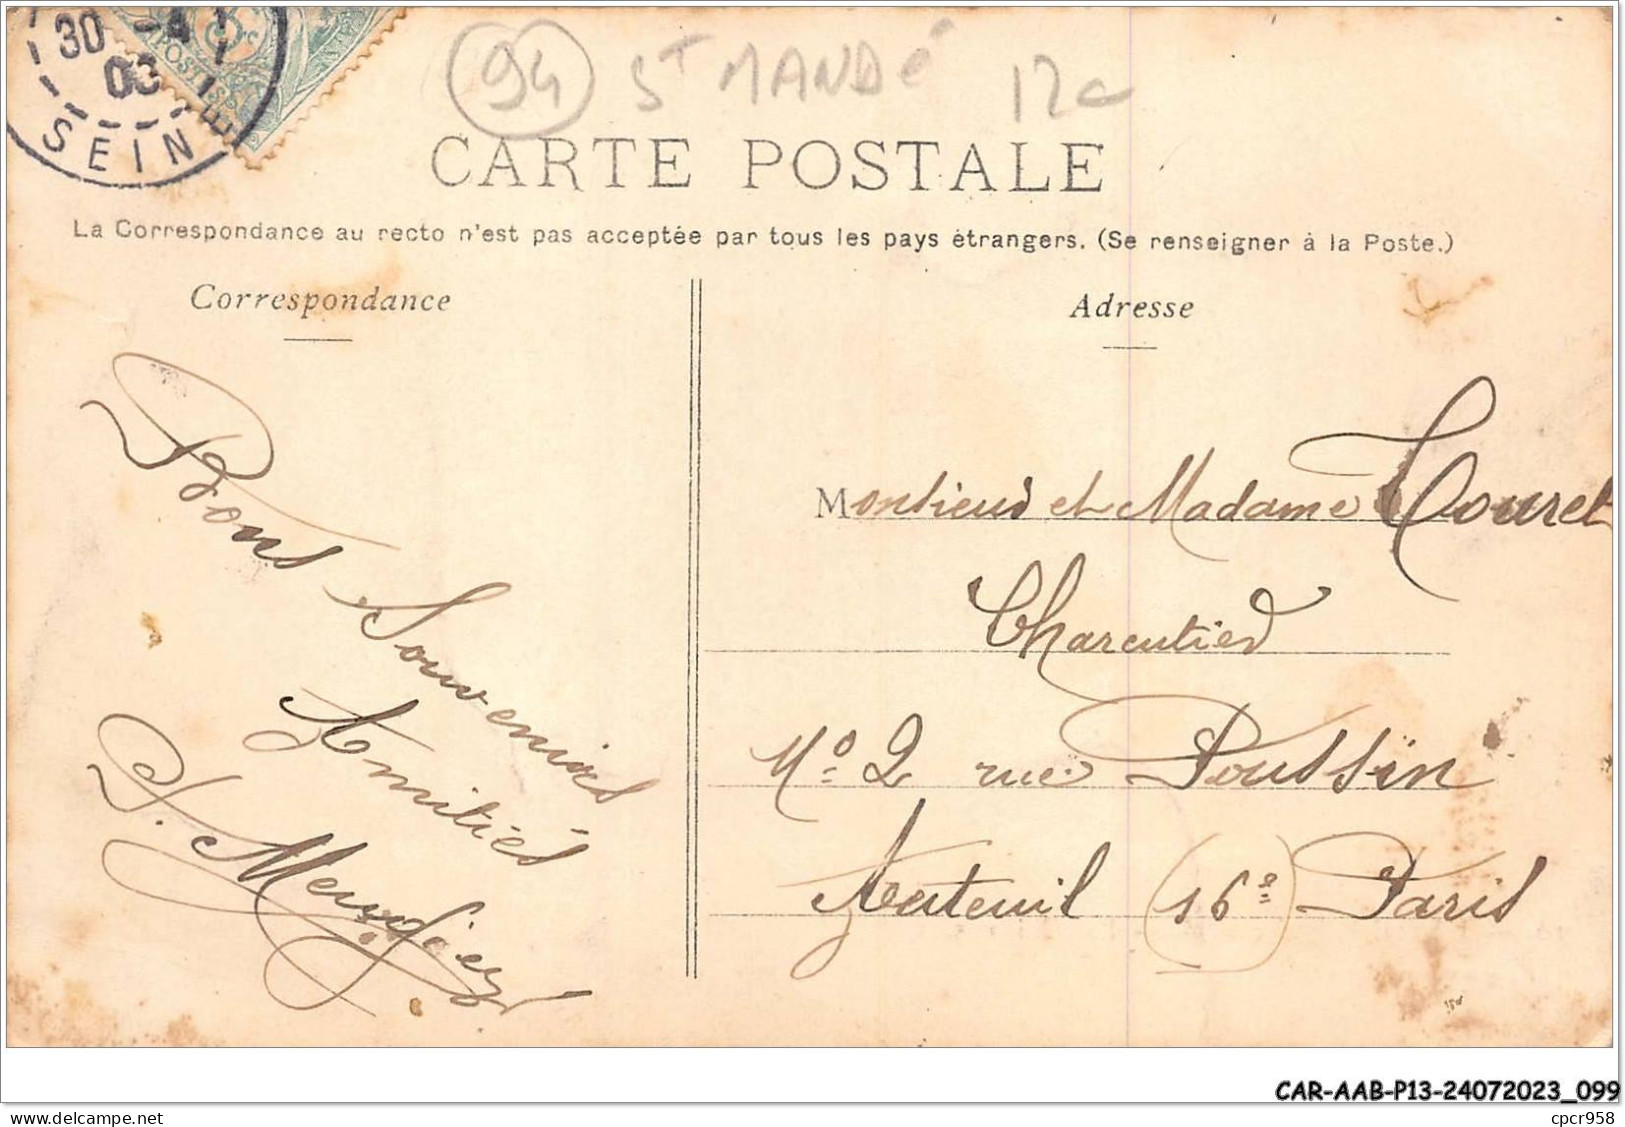 30 -4
03
SEINE
POSTES
94 ST MANDÉ 12c
CARTE POSTALE
La Correspondance au recto n'est pas acceptée par tous les pays étrangers. (Se renseigner à la Poste.)
Correspondance
Bons Souvenirs
Amitiés
Adresse
Monsieur et Madame Touret
Charcutier
No 2 rue Poussin
Auteuil (16e) Paris
CAR-AAB-P13-24072023_099
www.delcampe.net
cpcr958